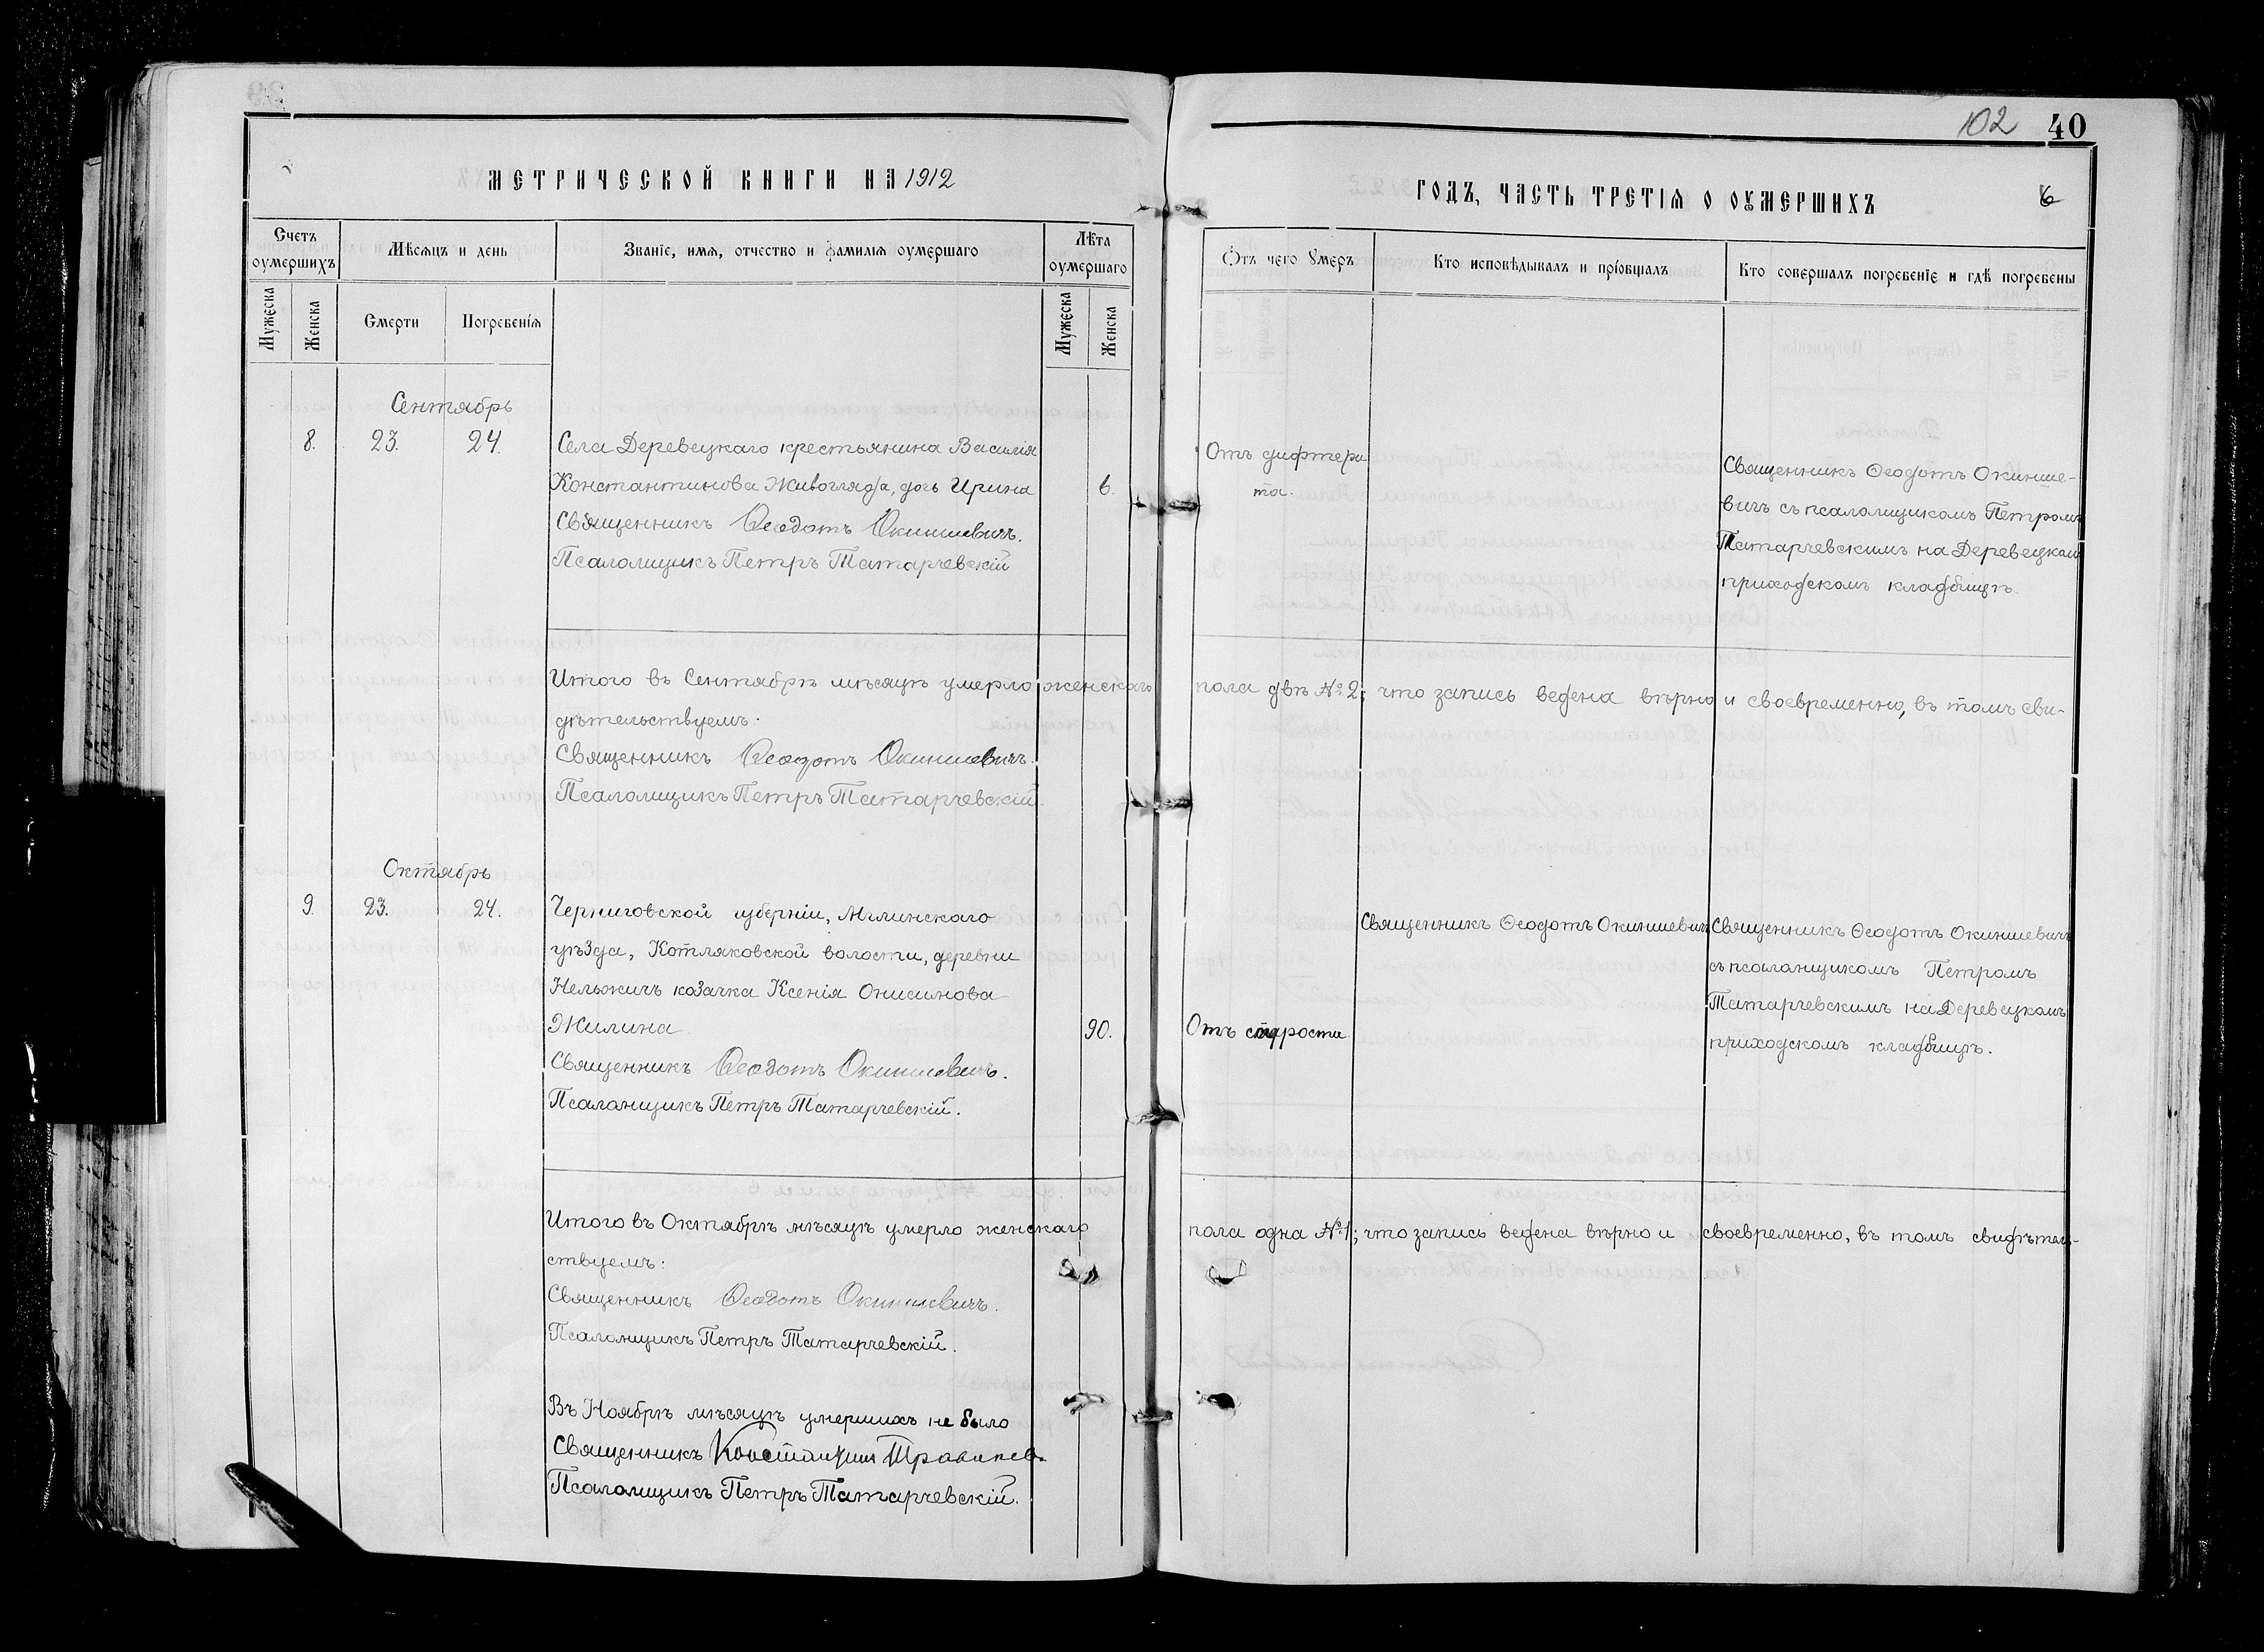 102 40
МЕТРИЧЕСКОЙ КНИГИ НА 1912
ГОДЪ, ЧАСТЬ ТРЕТІѦ О ОУМЕРШИХЪ
6
Счетъ оумершихъ
Мѣсѧцъ и день
Званїе, имѧ, отчество и фамилїѧ оумершаго
Лѣта оумершаго
Отъ чего Ꙋмеръ
Кто исповѣдывалъ и прїобщалъ
Кто совершалъ погребенїе и гдѣ погребены
Мужеска
Женска
Смерти
Погребенїѧ
Мужеска
Женска
Сентябрь
8. 23. 24.
Села Деревецкаго крестьянина Василія
Константинова Живогляда, дочь Ирина 6.
Священникъ Ѳеодотъ Окиншевичъ.
Псаломщикъ Петръ Татарчевскій
Отъ дифтери
та.
Священникъ Ѳеодотъ Окинше-
вичъ съ псаломщикомъ Петромъ
Татарчевскимъ на Деревецкомъ
приходскомъ кладбищѣ.
Итого въ Сентябрѣ мѣсяцѣ умерло женскаго пола двѣ № 2; что запись ведена вѣрно и своевременно, въ томъ сви-
дѣтельствуемъ:
Священникъ Ѳеодотъ Окиншевичъ.
Псаломщикъ Петръ Татарчевскій.
Октябрь
9. 23. 24.
Черниговской губерніи, Мглинскаго
уѣзда, Котляковской волости, деревни
Нельжичъ козачка Ксенія Онисимова
Жилина 90.
Священникъ Ѳеодотъ Окиншевичъ.
Псаломщикъ Петръ Татарчевскій.
Отъ старости.
Священникъ Ѳеодотъ Окиншевичъ
Священникъ Ѳеодотъ Окиншевичъ
съ псаломщикомъ Петромъ
Татарчевскимъ на Деревецкомъ
приходскомъ кладбищѣ.
Итого въ Октябрѣ мѣсяцѣ умерло женскаго пола одна № 1; что запись ведена вѣрно и своевременно, въ томъ свидѣтель-
ствуемъ:
Священникъ Ѳеодотъ Окиншевичъ.
Псаломщикъ Петръ Татарчевскій.
Въ Ноябрѣ мѣсяцѣ умершихъ не было
Священникъ Константин
Псаломщикъ Петръ Татарчевскій.